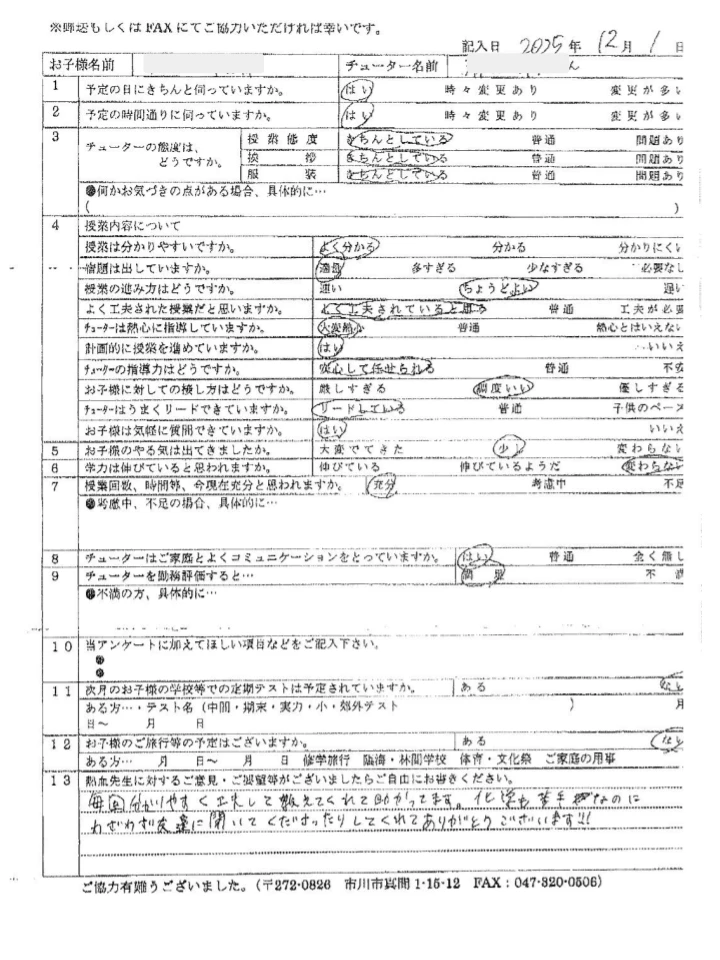 ※郵送もしくは FAX にてご協力いただければ幸いです。
記入日 2025年 12月 1日
お子様名前 チューター名前 ん
1 予定の日にきちんと伺っていますか。 はい 時々変更あり 変更が多い
2 予定の時間通りに伺っていますか。 はい 時々変更あり 変更が多い
3 チューターの態度は、どうですか。 授業態度 きちんとしている 普通 問題あり
挨拶 きちんとしている 普通 問題あり
服装 きちんとしている 普通 問題あり
●何かお気づきの点がある場合、具体的に…
( )
4 授業内容について
授業は分かりやすいですか。 よく分かる 分かる 分かりにくい
宿題は出していますか。 適量 多すぎる 少なすぎる 必要なし
授業の進み方はどうですか。 速い ちょうどよい 遅い
よく工夫された授業だと思いますか。 よく工夫されていると思う 普通 工夫が必要
ﾁｭｰﾀｰは熱心に指導していますか。 大変熱心 普通 熱心とはいえない
計画的に授業を進めていますか。 はい いいえ
ﾁｭｰﾀｰの指導力はどうですか。 安心して任せられる 普通 不安
お子様に対しての接し方はどうですか。 厳しすぎる 調度いい 優しすぎる
ﾁｭｰﾀｰはうまくリードできていますか。 リードしている 普通 子供のペース
お子様は気軽に質問できていますか。 はい いいえ
5 お子様のやる気は出てきましたか。 大変でてきた 少し 変わらない
6 学力は伸びていると思われますか。 伸びている 伸びているようだ 変わらない
7 授業回数、時間等、今現在充分と思われますか。 充分 考慮中 不足
●考慮中、不足の場合、具体的に…
8 チューターはご家庭とよくコミュニケーションをとっていますか。 はい 普通 全く無し
9 チューターを勤務評価すると… 満足 不満
●不満の方、具体的に…
10 当アンケートに加えてほしい項目などをご記入下さい。
●
●
11 次月のお子様の学校等での定期テストは予定されていますか。 ある なし
ある方…・テスト名（中間・期末・実力・小・郊外テスト ） 月
日～ 月 日
12 お子様のご旅行等の予定はございますか。 ある なし
ある方… 月 日～ 月 日 修学旅行 臨海・林間学校 体育・文化祭 ご家庭の用事
13 熱血先生に対するご意見・ご要望等がございましたらご自由にお書きください。
毎回分かりやすく工夫して教えてくれて助かってます。化学も苦手なのに
わざわざ友達に聞いてくださったりしてくれてありがとうございます!!
ご協力有難うございました。（〒272-0826 市川市真間 1-15-12 FAX：047-320-0506）